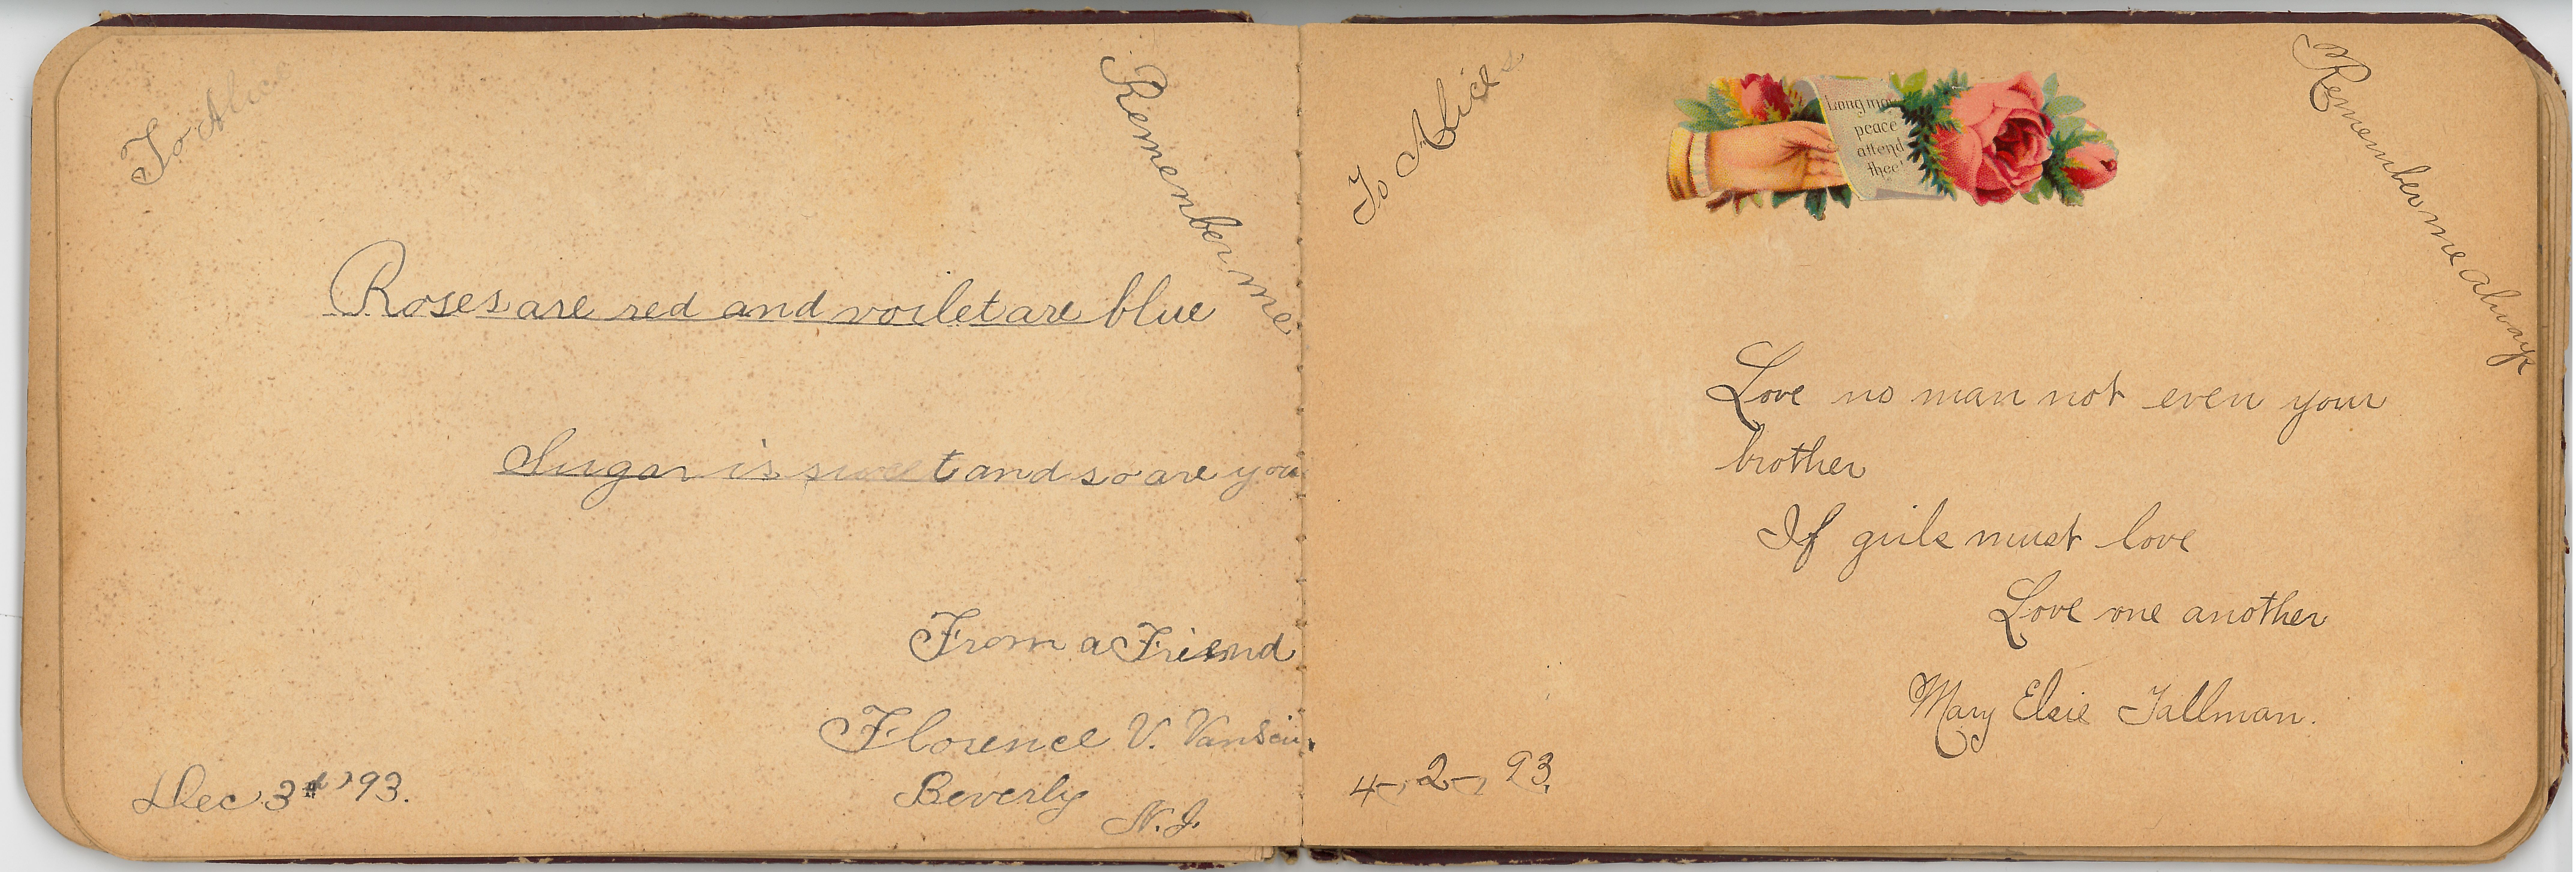 To Alice
Remember me
Roses are red and voilet are blue
Sugar is sweet and so are you
From a Friend
Florence V.
Beverly
N.J.
Dec 3rd '93.
To Alice
Long may
peace
attend
thee'
Remember me always
Love no man not even your
brother
If girls must love
Love one another
Mary Elsie Tallman.
4-, 2-, 93.